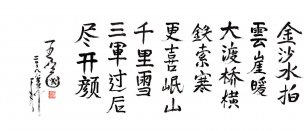 金沙水拍
雲崖暖
大渡桥横
鉄索寒
更喜岷山
千里雪
三軍过后
尽开颜